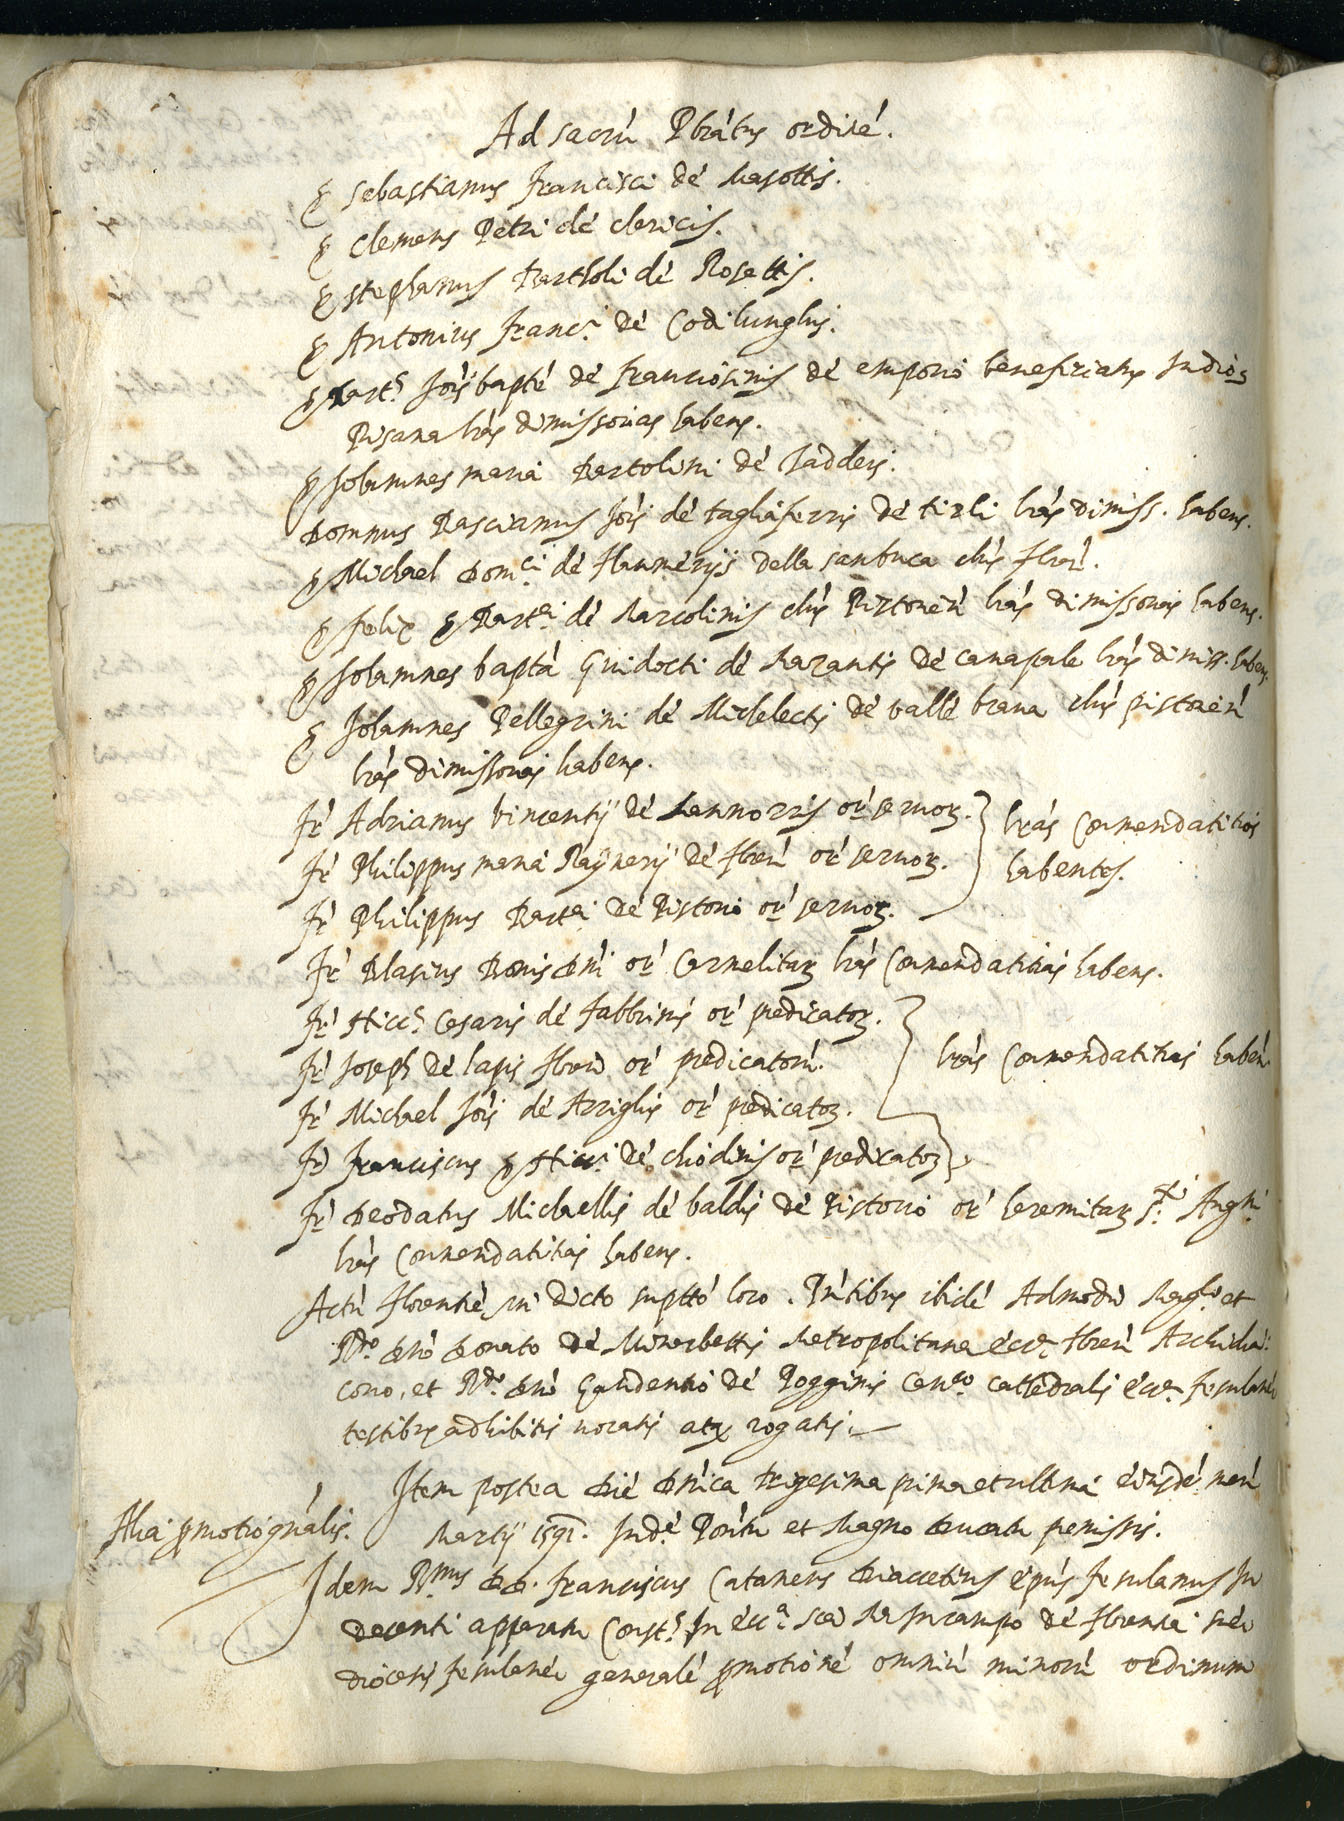 Ad sacrū Pbrãtus ordinē.
P. Sebastianus Francisci de Masottis.
P. Clemens Petri de Clericis.
P. Stephanus Bartholi de Rosettis.
P. Antonius Franci de Codilunghis.
P. Bart.s Joīs baptē de Franciosinis de emporio beneficiatus In dioc.
Pisana lrãs dimissorias habens.
P. Johannes maria Bertolini de Taddeis.
Domnus Bascianus Joīs de tagliaferris de tirli lrãs dimiss. habens.
P. Michael Dom.ci de Flammerijs della sanbuca clūs Flor.
P. Felix P. Bart.i de Marcolinis clūs Pistoreñ lrãs dimissorias habens.
P. Johannes baptā Guidocti de Mazantis de canapale lrãs dimiss. habens.
P. Johannes Pellegrini de Michelectis de valle brana clūs pistoreñ
lrãs dimissorias habens.
Fr. Adrianus vincentij de Mannozzis or. servoz.
Fr. Philippus maria Raynerij de Floreñ or. servoz.
Fr. Philippus Bart.i de Pistorio or. servoz.
lrãs Comendatitias
habentes.
Fr. Blasius Bonis Dñi or. Carmelitaz lrãs Comendatitias habens.
Fr. Nicc.s Cesaris de Fabbrinis or. predicatoz.
Fr. Joseph de lapis Floreñ or. predicatorū.
Fr. Michael Joīs de Arrighis or. predicatoz.
lrãs Comendatitias habeñ.
Fr. Franciscus P. Nicc.i de chiodinis or. predicatoz
Fr. Deodatus Michaellis de baldis de Pistorio or. heremitaz S.ti Aug.ni
lrãs Comendatitias habens.
Actū Florentiē in dicto suptto loco. Pñtibus ibidē Admodū Mag.co et
R.do dño Donato de Minerbettis Metropolitane eccl.e Floreñ Archidia:
cono, et R.do dño Gaudentio de Pogginis Can.co cathedralis eccl.e Fesulane
testibus adhibitis vocatis atqz rogatis.
Item postea die dñica trigesima prima et ultima eiusdē meñ
Alia pmotio gñalis.
Martij 1591. Ind.e Pont. et Magno ducatu premissis.
Idem R.mus D.D. Franciscus Cataneus Diaccetius epūs Fesulanus In
decenti apparatu Const.s In eccl.a Sce Me In campo de Florentia sue
diocesis Fesulane generalē pmotionē omniū minorū ordinum